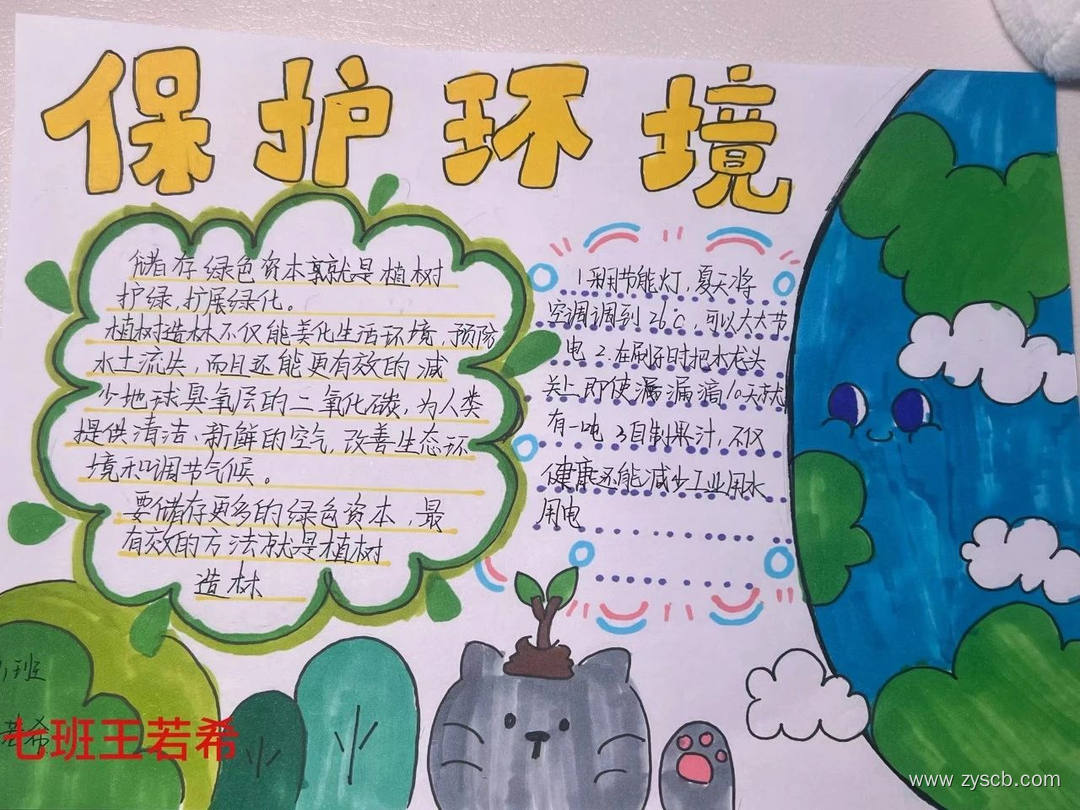 保护环境
储存绿色资本就是植树
护绿,扩展绿化。
植树造林不仅能美化生活环境,预防
水土流失,而且还能更有效的减
少地球臭氧层的二氧化碳,为人类
提供清洁、新鲜的空气,改善生态环
境和调节气候。
要储存更多的绿色资本,最
有效的方法就是植树
造林
1.采用节能灯,夏天将
空调调到26℃,可以大大节
电 2.在刷牙时把水龙头
关上即使漏漏滴10天就
有一吨 3自制果汁,不仅
健康还能减少工业用水
用电
班
若希
七班王若希
www.zyscb.com